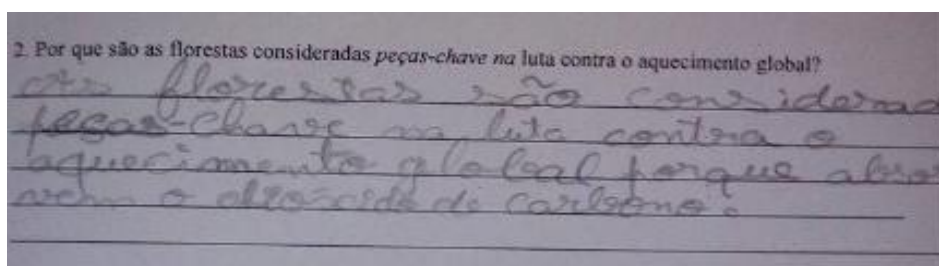 2. Por que são as florestas consideradas peças-chave na luta contra o aquecimento global?
As florestas são considerad
peças-chave na luta contra o
aquecimento global porque absor
vem o dióxido de carbono.